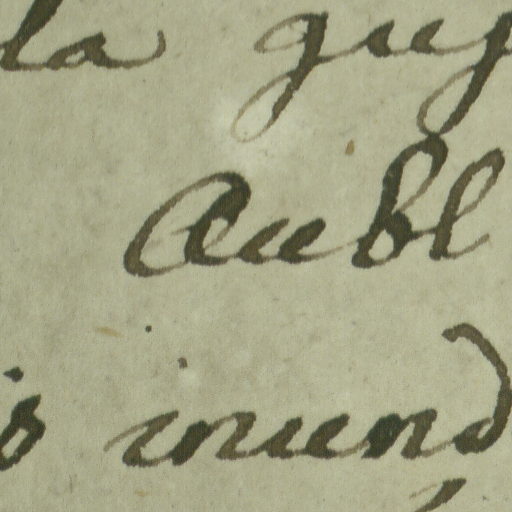 la guy
Aubl
s inund